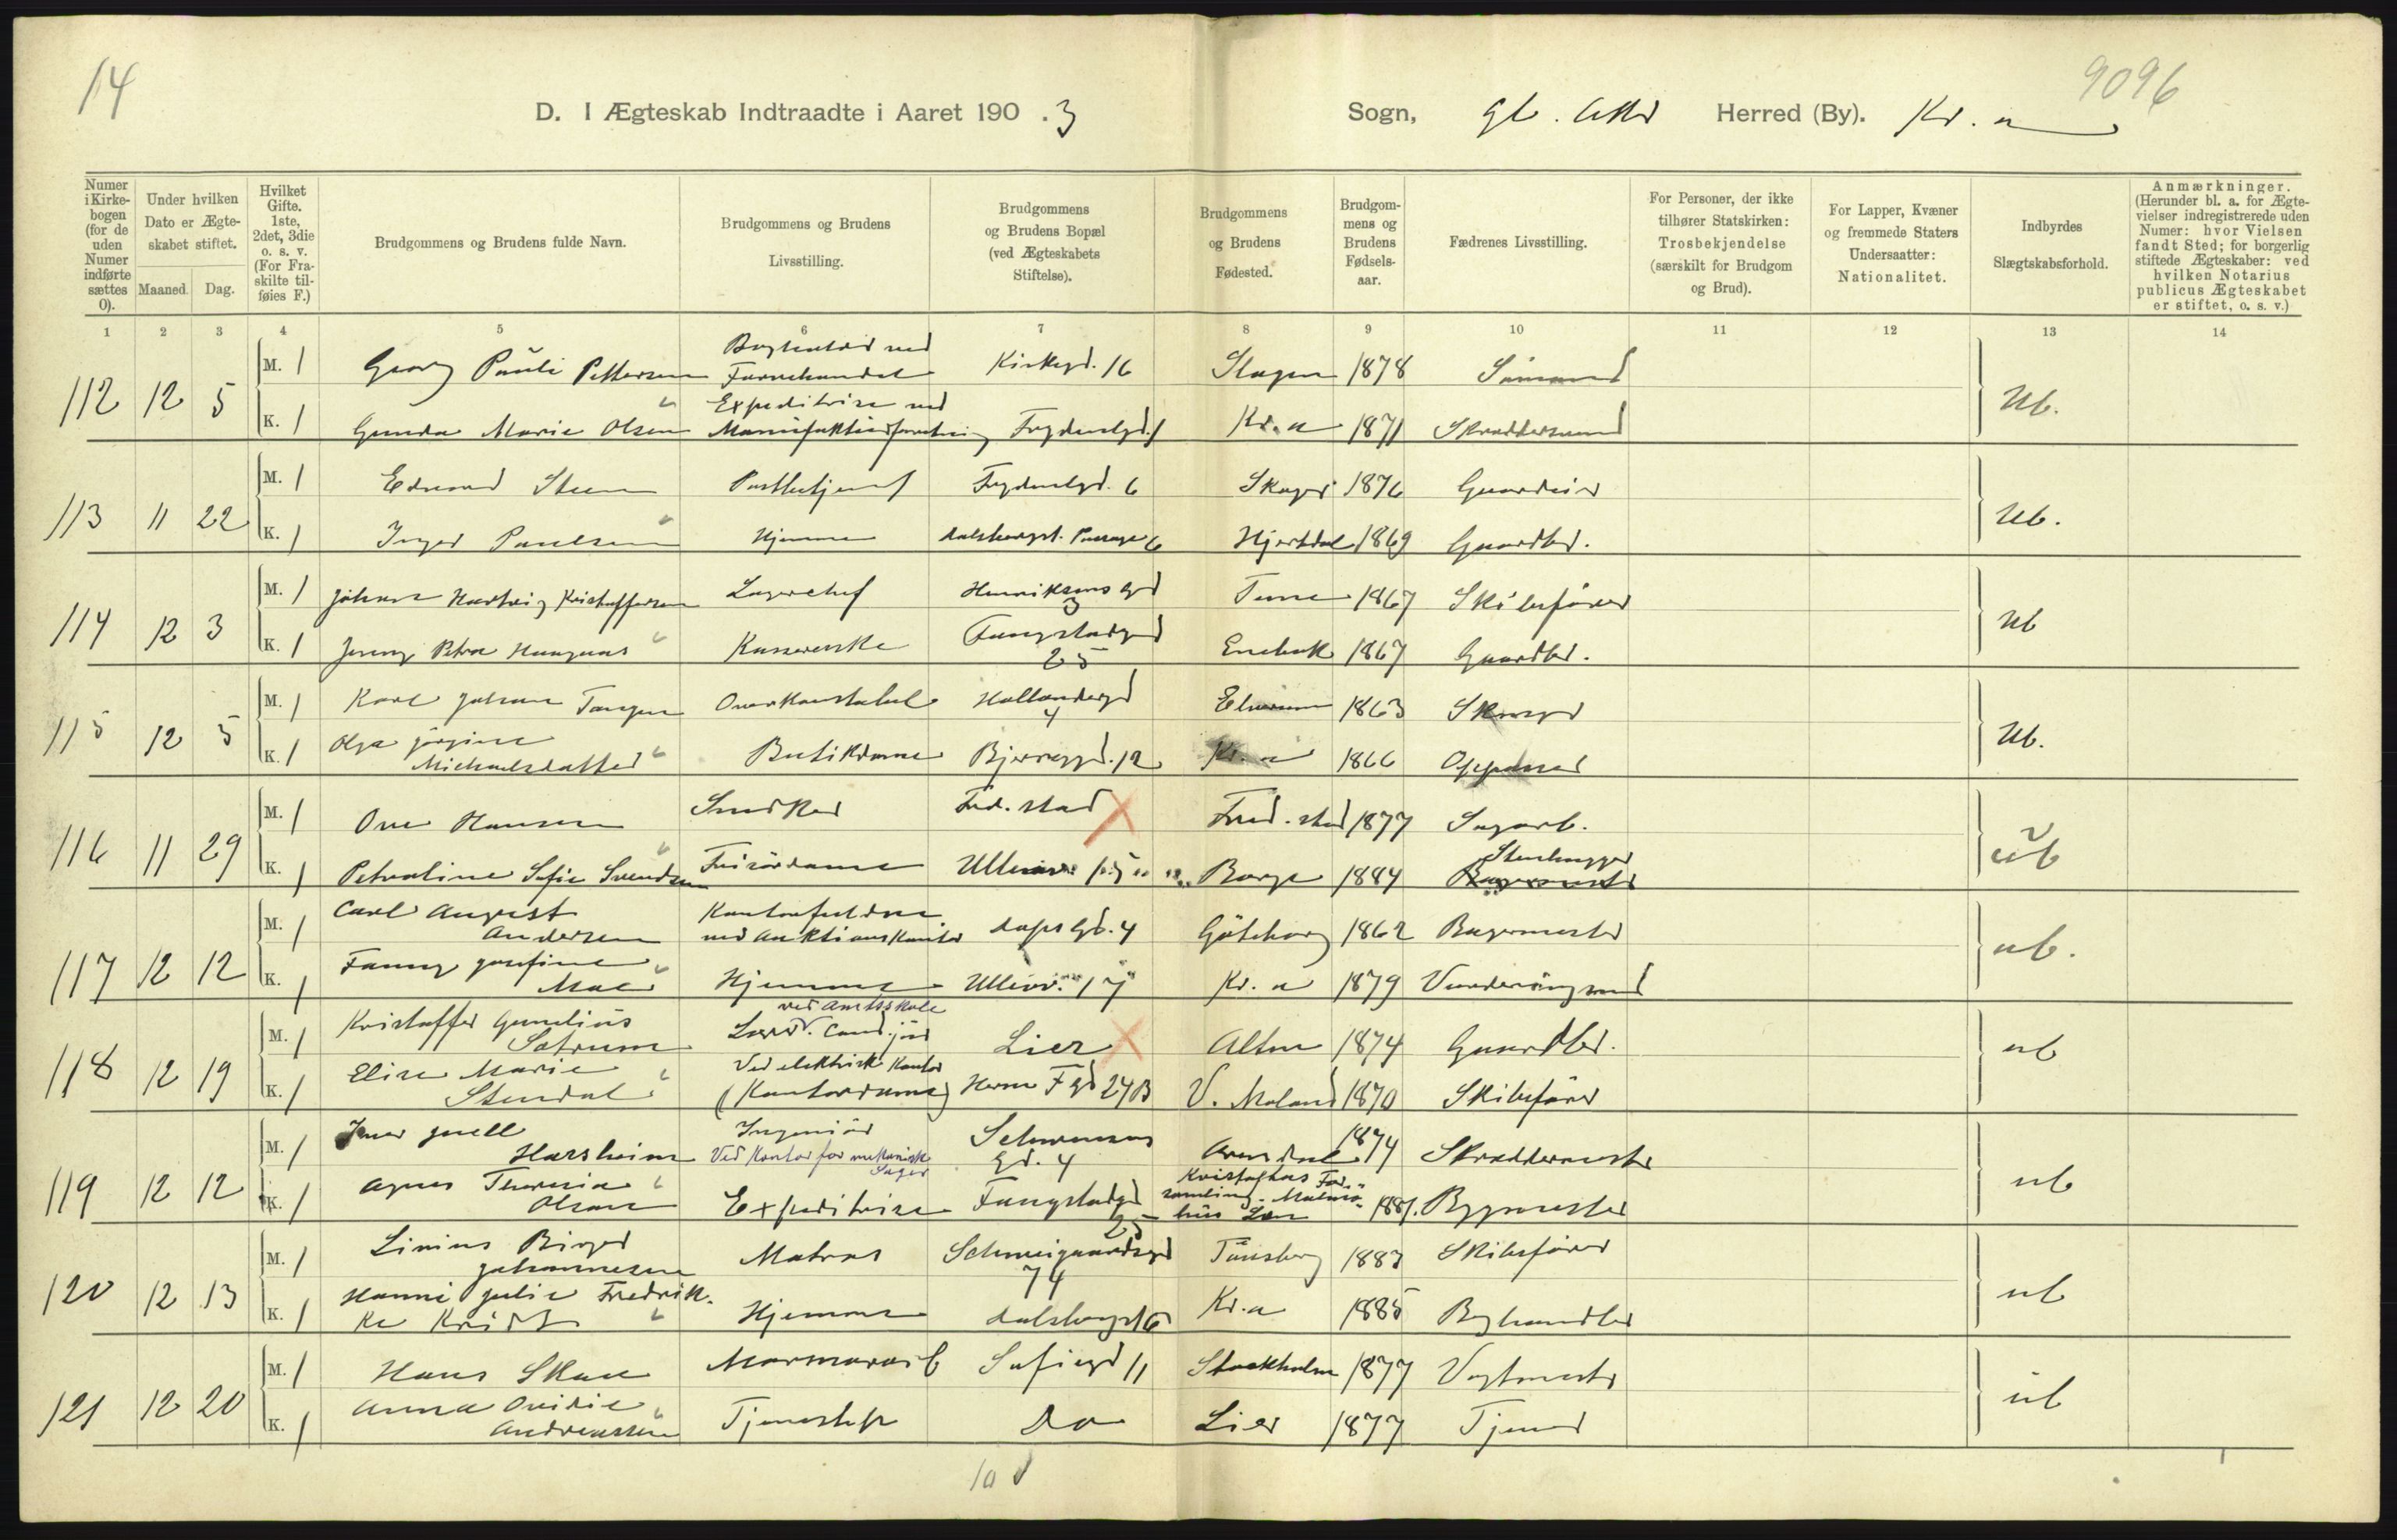 14
9096
D. I Ægteskab Indtraadte i Aaret 190 . 3
Sogn, Gl. Aker Herred (By). Kr. a
Numer i Kirke-bogen (for de uden Numer indførte sættes 0).
Under hvilken Dato er Ægte-skabet stiftet.
Maaned. Dag.
Hvilket Gifte. 1ste, 2det, 3die o. s. v. (For Fra-skilte til-føies F.)
Brudgommens og Brudens fulde Navn.
Brudgommens og Brudens Livsstilling.
Brudgommens og Brudens Bopæl (ved Ægteskabets Stiftelse).
Brudgommens og Brudens Fødested.
Brudgom-mens og Brudens Fødsels-aar.
Fædrenes Livsstilling.
For Personer, der ikke tilhører Statskirken: Trosbekjendelse (særskilt for Brudgom og Brud).
For Lapper, Kvæner og fremmede Staters Undersaatter: Nationalitet.
Indbyrdes Slægtskabsforhold.
Anmærkninger. (Herunder bl. a. for Ægte-vielser indregistrerede uden Numer: hvor Vielsen fandt Sted; for borgerlig stiftede Ægteskaber: ved hvilken Notarius publicus Ægteskabet er stiftet, o. s. v.)
1 2 3 4 5 6 7 8 9 10 11 12 13 14
112 12 5 M. 1 Georg Pauli Pettersen Bogholder ved Farvehandel Kirkegd. 16 Skagen 1878 Sömand Ub.
K. 1 Gunda Marie Olsen Expeditrise ved Manufakturforretning Kr. a 1871 Skræddersvend
113 11 22 M. 1 Edvard Steen Postbetjent 6 1876 Gaardeier Ub.
K. 1 Inger Paulsen Hjemme Dalsbergst. Passage 6 Hjertdal 1869 Gaardbr.
114 12 3 M. 1 Johan Hartvig Kristoffersen Lagerchef Henriksens gd 3 Tune 1867 Skibsfører Ub
K. 1 Jenny Petra Haugnæs Kassererske Fougstadgd 25 Enebak 1867 Gaardbr.
115 12 5 M. 1 Karl Johan Tangen Overkonstabel Hollendergd 4 Elverum 1863 Ub.
K. 1 Olga Jörgine Michaelsdatter Butikdame Bjerregd. 12 Kr. a 1866 Oppasser
116 11 29 M. 1 Ove Hansen Snedker Fred. stad Fred. stad 1877 Sagarb. ub
K. 1 Petroline Sofie Svendsen Frisördame Borge 1884 Stenhugger
117 12 12 M. 1 Carl August Andersen Kontorfuldm. ved Auktionskontor Daps Gd. 4 Göteborg 1862 Bagermester ub.
K. 1 Fanny Josefine Moe Hjemme Kr. a 1879 Vurderingsmand
118 12 19 M. 1 Kristoffer Gundius Satrum Lærer v. Cand. jur ved Amtsskole Lier 1874 Gaardbr. ub
K. 1 Elise Marie Stendal Ved elektrisk Kontor (Kontordame) Herm F gd 27B V. Moland 1870 Skibsfører
119 12 12 M. 1 Juell Harsheim Ingeniör Ved Kontor for mekanisk Sager Schwensens Gd. 4 Arendal 1874 Skræddermester ub
K. 1 Agnes Theresia Olsen Expeditrise Fougstadgd 25 Kristofhas For-samling. Malmö-hus Len 1881. Bygmester
120 12 13 M. 1 Linius Birger Johannesen Matros Schweigaardsgd 74 Tönsberg 1883 Skibsfører ub
K. 1 Hanni Julie Fredrik-ke Hjemme Dalsbergst 6 Kr. a 1885 Boghandler
121 12 20 M. 1 Hans Skau Marmorarb Sofiegd 11 Stockholm 1877 Vogtmester ub
K. 1 Anna Ovidie Andreassen Tjenestep Do Lier 1877 Tjener
10